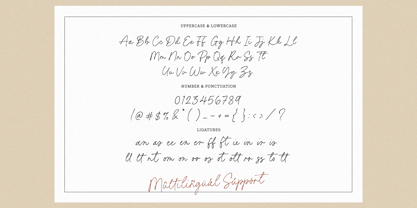 UPPERCASE & LOWERCASE
Aa Bb Cc Dd Ee Ff Gg Hh Ii Jj Kk Ll
Mm Nn Oo Pp Qq Rr Ss Tt
Uu Vv Ww Xx Yy Zz
NUMBER & PUNCTUATION
0123456789
LIGATURES
an as ee en er ff ft ie in ir is
Multilingual Support